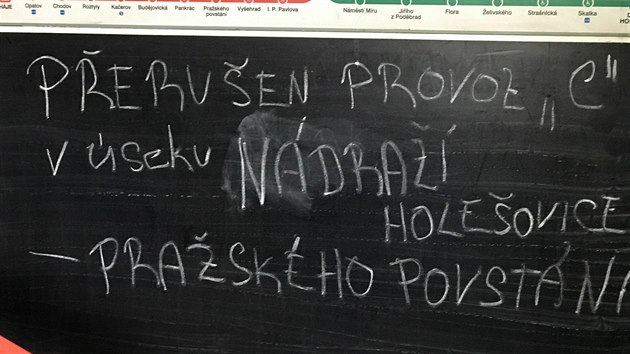 HÁJE Opatov Chodov Roztyly Kačerov Budějovická Pankrác Pražského povstání Vyšehrad I. P. Pavlova Náměstí Míru Jiřího z Poděbrad Flora Želivského Strašnická Skalka
PŘERUŠEN PROVOZ „C"
v úseku NÁDRAŽÍ
HOLEŠOVICE
— PRAŽSKÉHO POVSTÁNÍ